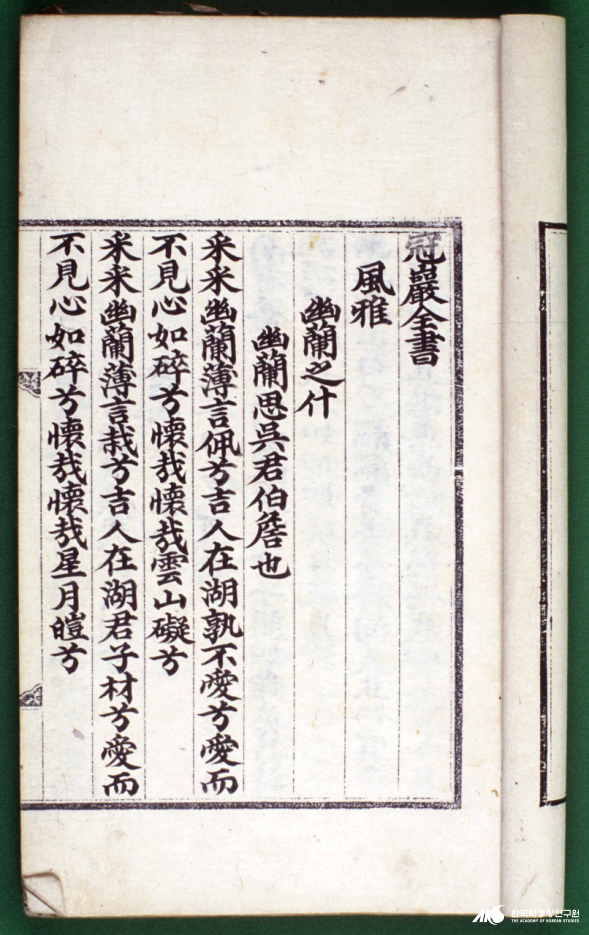 冠巖全書
風雅
幽蘭之什
幽蘭思吳君伯詹也
采采幽蘭薄言佩兮吉人在湖孰不愛兮愛而
不見心如碎兮懷哉懷哉雲山礙兮
采采幽蘭薄言栽兮吉人在湖君子材兮愛而
不見心如碎兮懷哉懷哉星月皚兮
한국학중앙연구원
THE ACADEMY OF KOREAN STUDIES